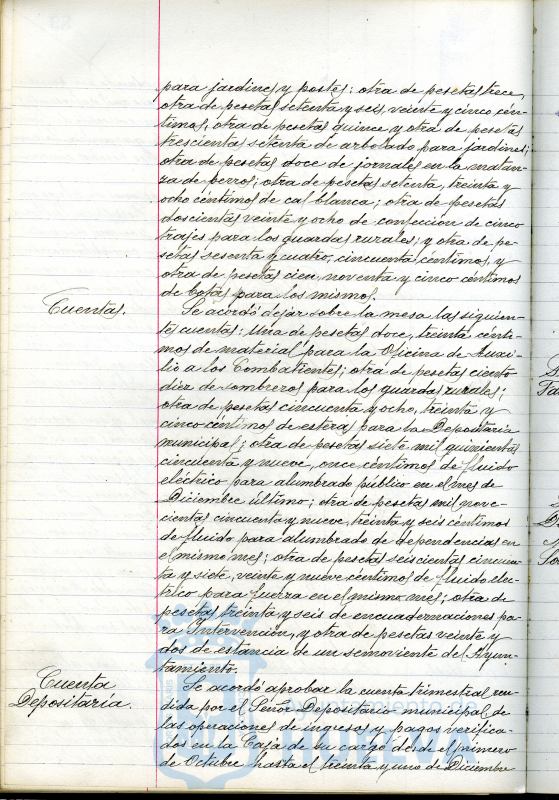 para jardines y postes; otra de pesetas trece,
otra de pesetas setenta y seis, veinte y cinco cén-
timos, otra de pesetas quince y otra de pesetas
trescientas setenta de arbolado para jardines;
otra de pesetas doce de jornales en la matan-
za de perros; otra de pesetas setenta, treinta y
ocho céntimos de cal blanca; otra de pesetas
doscientas veinte y ocho de confección de cinco
trajes para los guardas rurales; y otra de pe-
setas sesenta y cuatro, cincuenta céntimos, y
otra de pesetas cien, noventa y cinco céntimos
de botas para los mismos.
Cuentas.
Se acordó dejar sobre la mesa las siguien-
tes cuentas: Una de pesetas doce, treinta cénti-
mos de material para la Oficina de Auxi-
lio a los Combatientes; otra de pesetas ciento
diez de sombreros para los guardas rurales;
otra de pesetas cincuenta y ocho, treinta y
cinco céntimos de estera para la Depositaria
municipal; otra de pesetas siete mil quinientas
cincuenta y nueve, once céntimos de fluido
eléctrico para alumbrado público en el mes de
Diciembre último; otra de pesetas mil nove-
cientas cincuenta y nueve, treinta y seis céntimos
de fluido para alumbrado de dependencias en
el mismo mes; otra de pesetas seiscientas cincuen-
ta y siete, veinte y nueve céntimos de fluido eléc-
trico para fuerza en el mismo mes; otra de
pesetas treinta y seis de encuadernaciones pa-
ra Intervención, y otra de pesetas veinte y
dos de estancia de un semoviente del Ayun-
tamiento.
Cuenta
Depositaría.
Se acordó aprobar la cuenta trimestral ren-
dida por el Señor Depositario municipal de
las operaciones de ingresos y pagos verifica-
dos en la Caja de su cargo desde el primero
de Octubre hasta el treinta y uno de Diciembre